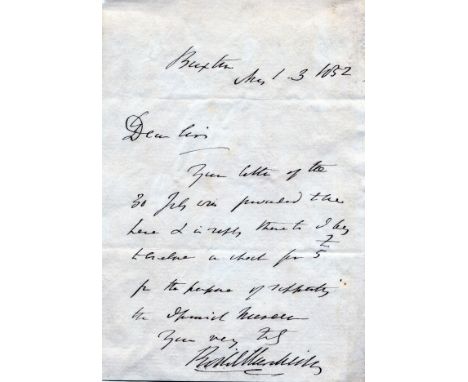 Buxton
Aug 3 1852
Dear Sir
Your letter of the
30 July was forwarded to me
here & in reply thereto I beg
to enclose a check for £5
for the purpose of supporting
the Ipswich Museum
Your very